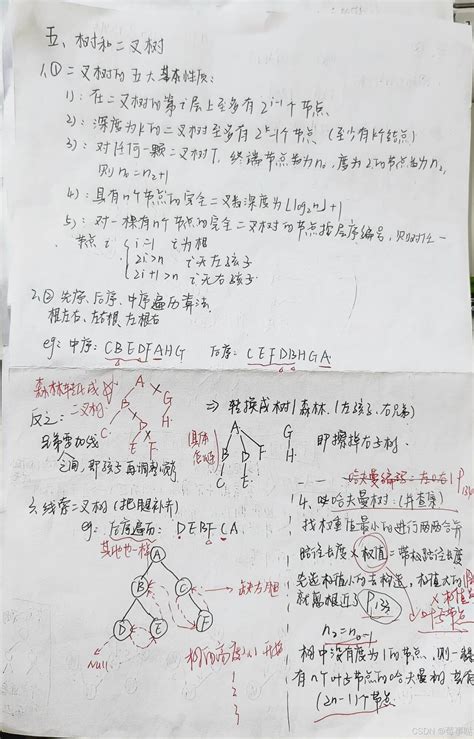 五、树和二叉树
1、① 二叉树的五大基本性质:
1): 在二叉树的第i层上至多有2^{i-1}个节点
2): 深度为k的二叉树至多有2^k-1个节点 (至少有k个结点)
3): 对任何一颗二叉树T, 终端节点数为n₀, 度为2的节点数为n₂,
则n₀=n₂+1
4): 具有n个节点的完全二叉树深度为⌊log₂n⌋+1
5): 对一棵有n个节点的完全二叉树的节点按层序编号, 则对任一
节点i { i=1 i为根
2i>n i无左孩子
2i+1>n i无右孩子
2、② 先序、后序、中序遍历算法
根左右、左右根、左根右
eg: 中序: CBEDFAHG 后序: CEFDBHGA
森林转化成
二叉树
反之:
兄弟需加线
A
B G
C D H
E F
⇒ 转换成树/森林 (左孩子, 右兄弟)
即擦掉右子树
A G
B D F H
C E
3、线索二叉树 (把
eg: 后序遍历: DEBFCA
其他也一样
A
B C
D E F
Null
1
2
3
哈夫曼编码: 左0右1
4、哈夫曼树:
找权重值最小的进行两两合并
路径长度×权值=带权路径长度
先选权值小的去构造, 权值大的
就靠
叶子节点
树中没有度为1的节点, 则一棵
有n个叶子节点的哈夫曼树共有
(2n-1)个节点
CSDN